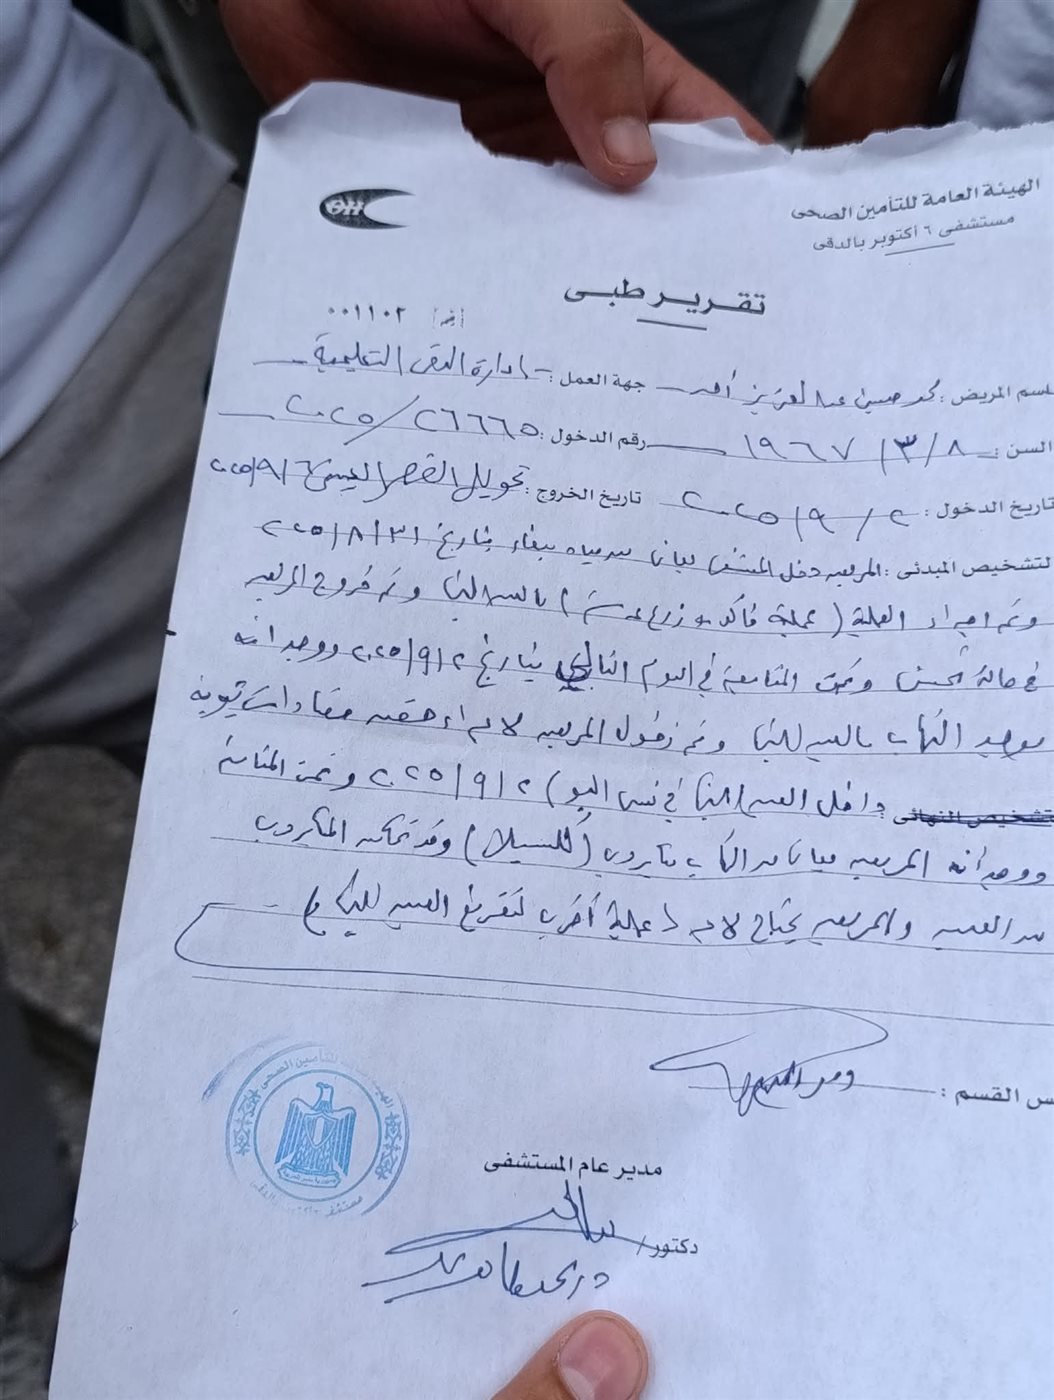 الهيئة العامة للتأمين الصحى
مستشفى ٦ أكتوبر بالدقى
تقرير طبى
٠٠١١٠٢
اسم المريض : حسين عبد العزيز أحمد جهة العمل : إدارة الدقى التعليمية
السن : ١٩٦٧/٣/٨ رقم الدخول : ٢٠٢٥/٢٦٦٦٥
تاريخ الدخول : ٢٠٢٥/٩/٢ تاريخ الخروج : تحويل القصر العينى ٢٠٢٥/٩/٦
التشخيص المبدئى : المريض دخل المستشفى يعانى من مياه بيضاء بتاريخ ٢٠٢٥/٨/٣١
وتم اجراء العملية ( عملية فاكو + زرع عدسة ) بالعين اليمنى وتم خروج المريض
فى حالة تحسن وتمت المتابعة فى اليوم التالى بتاريخ ٢٠٢٥/٩/٢ ووجد انه
يوجد التهاب بالعين اليمنى وتم دخول المريض لاجراء حقن مضادات حيوية
تشخيص النهائى : داخل العين اليمنى فى نفس اليوم ٢٠٢٥/٩/٢ وتمت المتابعة
ووجد أنه المريض يعانى من التهاب بكتيرى وقد تمكن الميكروب
من العين والمريض يحتاج لاجراء عملية أخرى لتفريغ العين اليمنى
س القسم :
مدير عام المستشفى
دكتور /